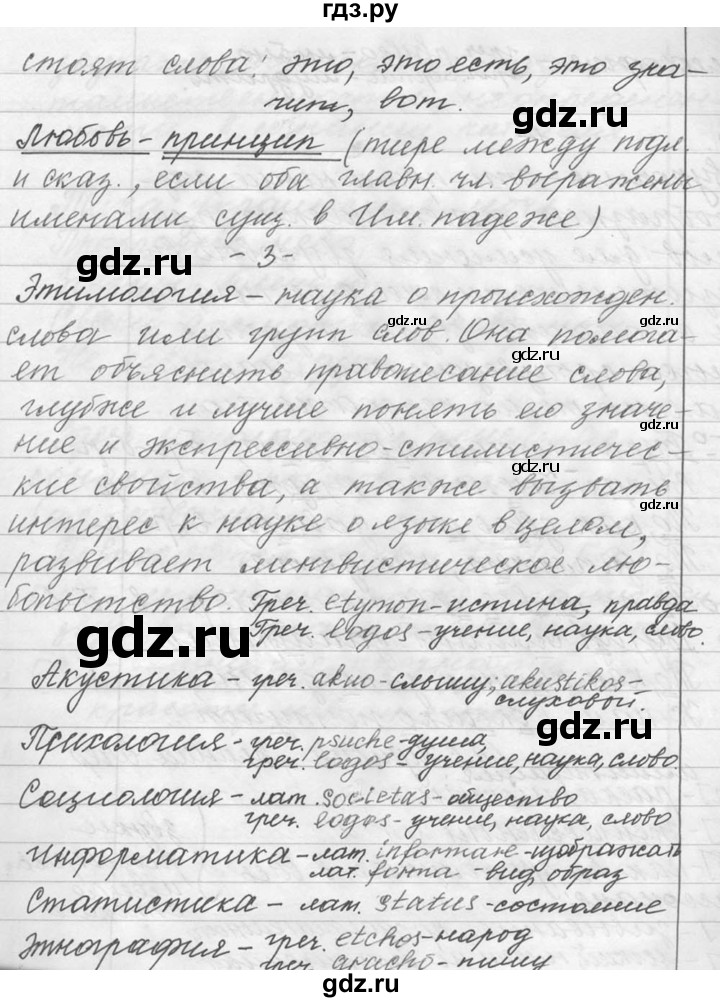 гдз.ру
стоят слова: это, это есть, это зна-
чит, вот.
gdz.ru
Любовь - принцип (тире между подл.
и сказ., если оба главн. чл. выражены
gdz.ru
именами сущ. в Им. падеже)
- 3 -
gdz.ru
Этимология – наука о происхожден.
gdz.ru
gdz.ru
слова или групп слов. Она помога-
ет объяснить правописание слова,
gdz.ru
глубже и лучше понять его значе-
gdz.ru
ние и экспрессивно-стилистичес-
gdz.ru
кие свойства, а также вызвать
интерес к науке о языке в целом,
gdz.ru
развивает лингвистическое лю-
бопытство. Греч. etymon - истина, правда
gdz.ru
Греч. logos - учение, наука, слово.
gdz.ru
Акустика – греч. akuo - слышу; akustikos -
слуховой.
gdz.ru
Психология - греч. psuche - душа,
греч. logos - учение, наука, слово.
Социология - лат. societas - общество
греч. logos - учение, наука, слово
Информатика - лат. informare - изображать
лат. forma - вид, образ
Статистика - лат. status - состояние
gdz.ru
Этнография - греч. etchos - народ
греч. gracho - пишу
gdz.ru